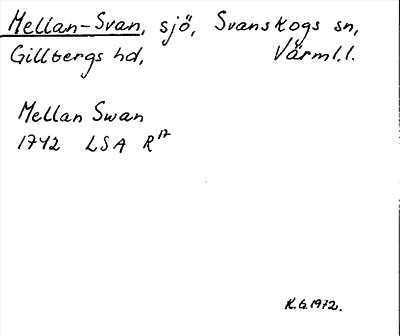 Mellan-Svan, sjö, Svanskogs sn,
Gillbergs hd, Värml.l.
Mellan Swan
1742 LSA R¹⁷
K.G.1972.